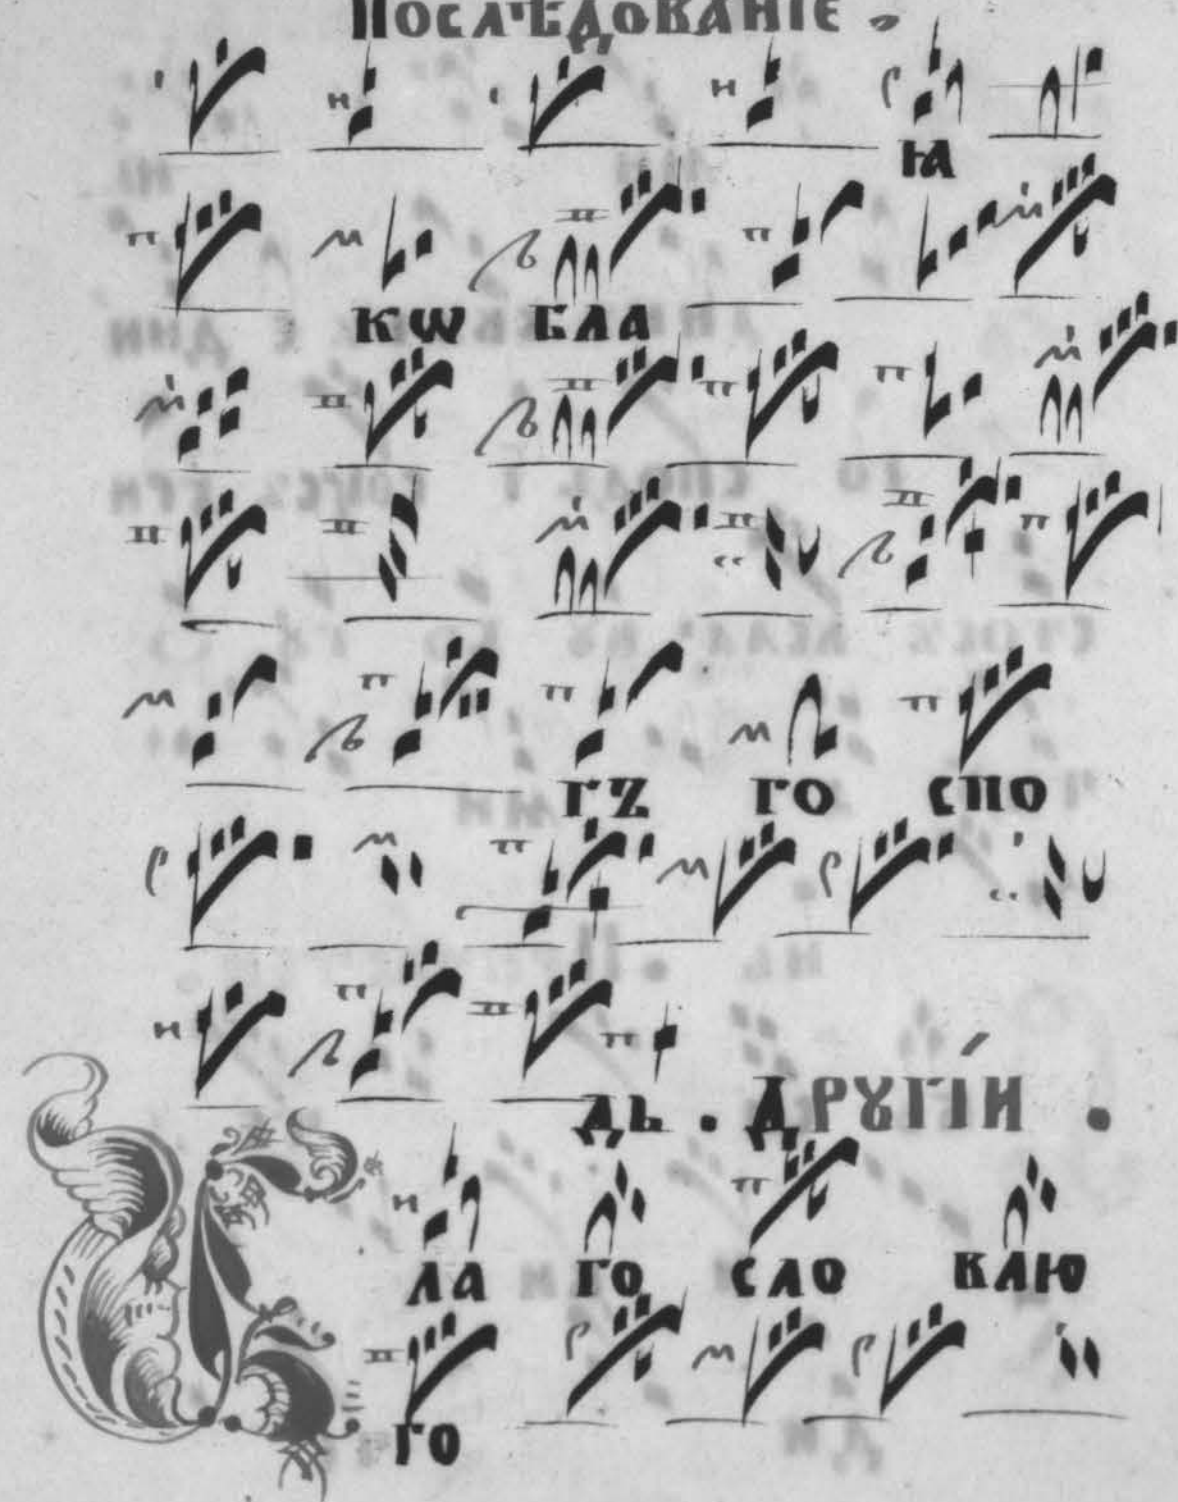 Послѣдованіе.
ꙗ
кѡ бла
гъ го спо
дь. Дрꙋгі́й.
ла го сло влю
го